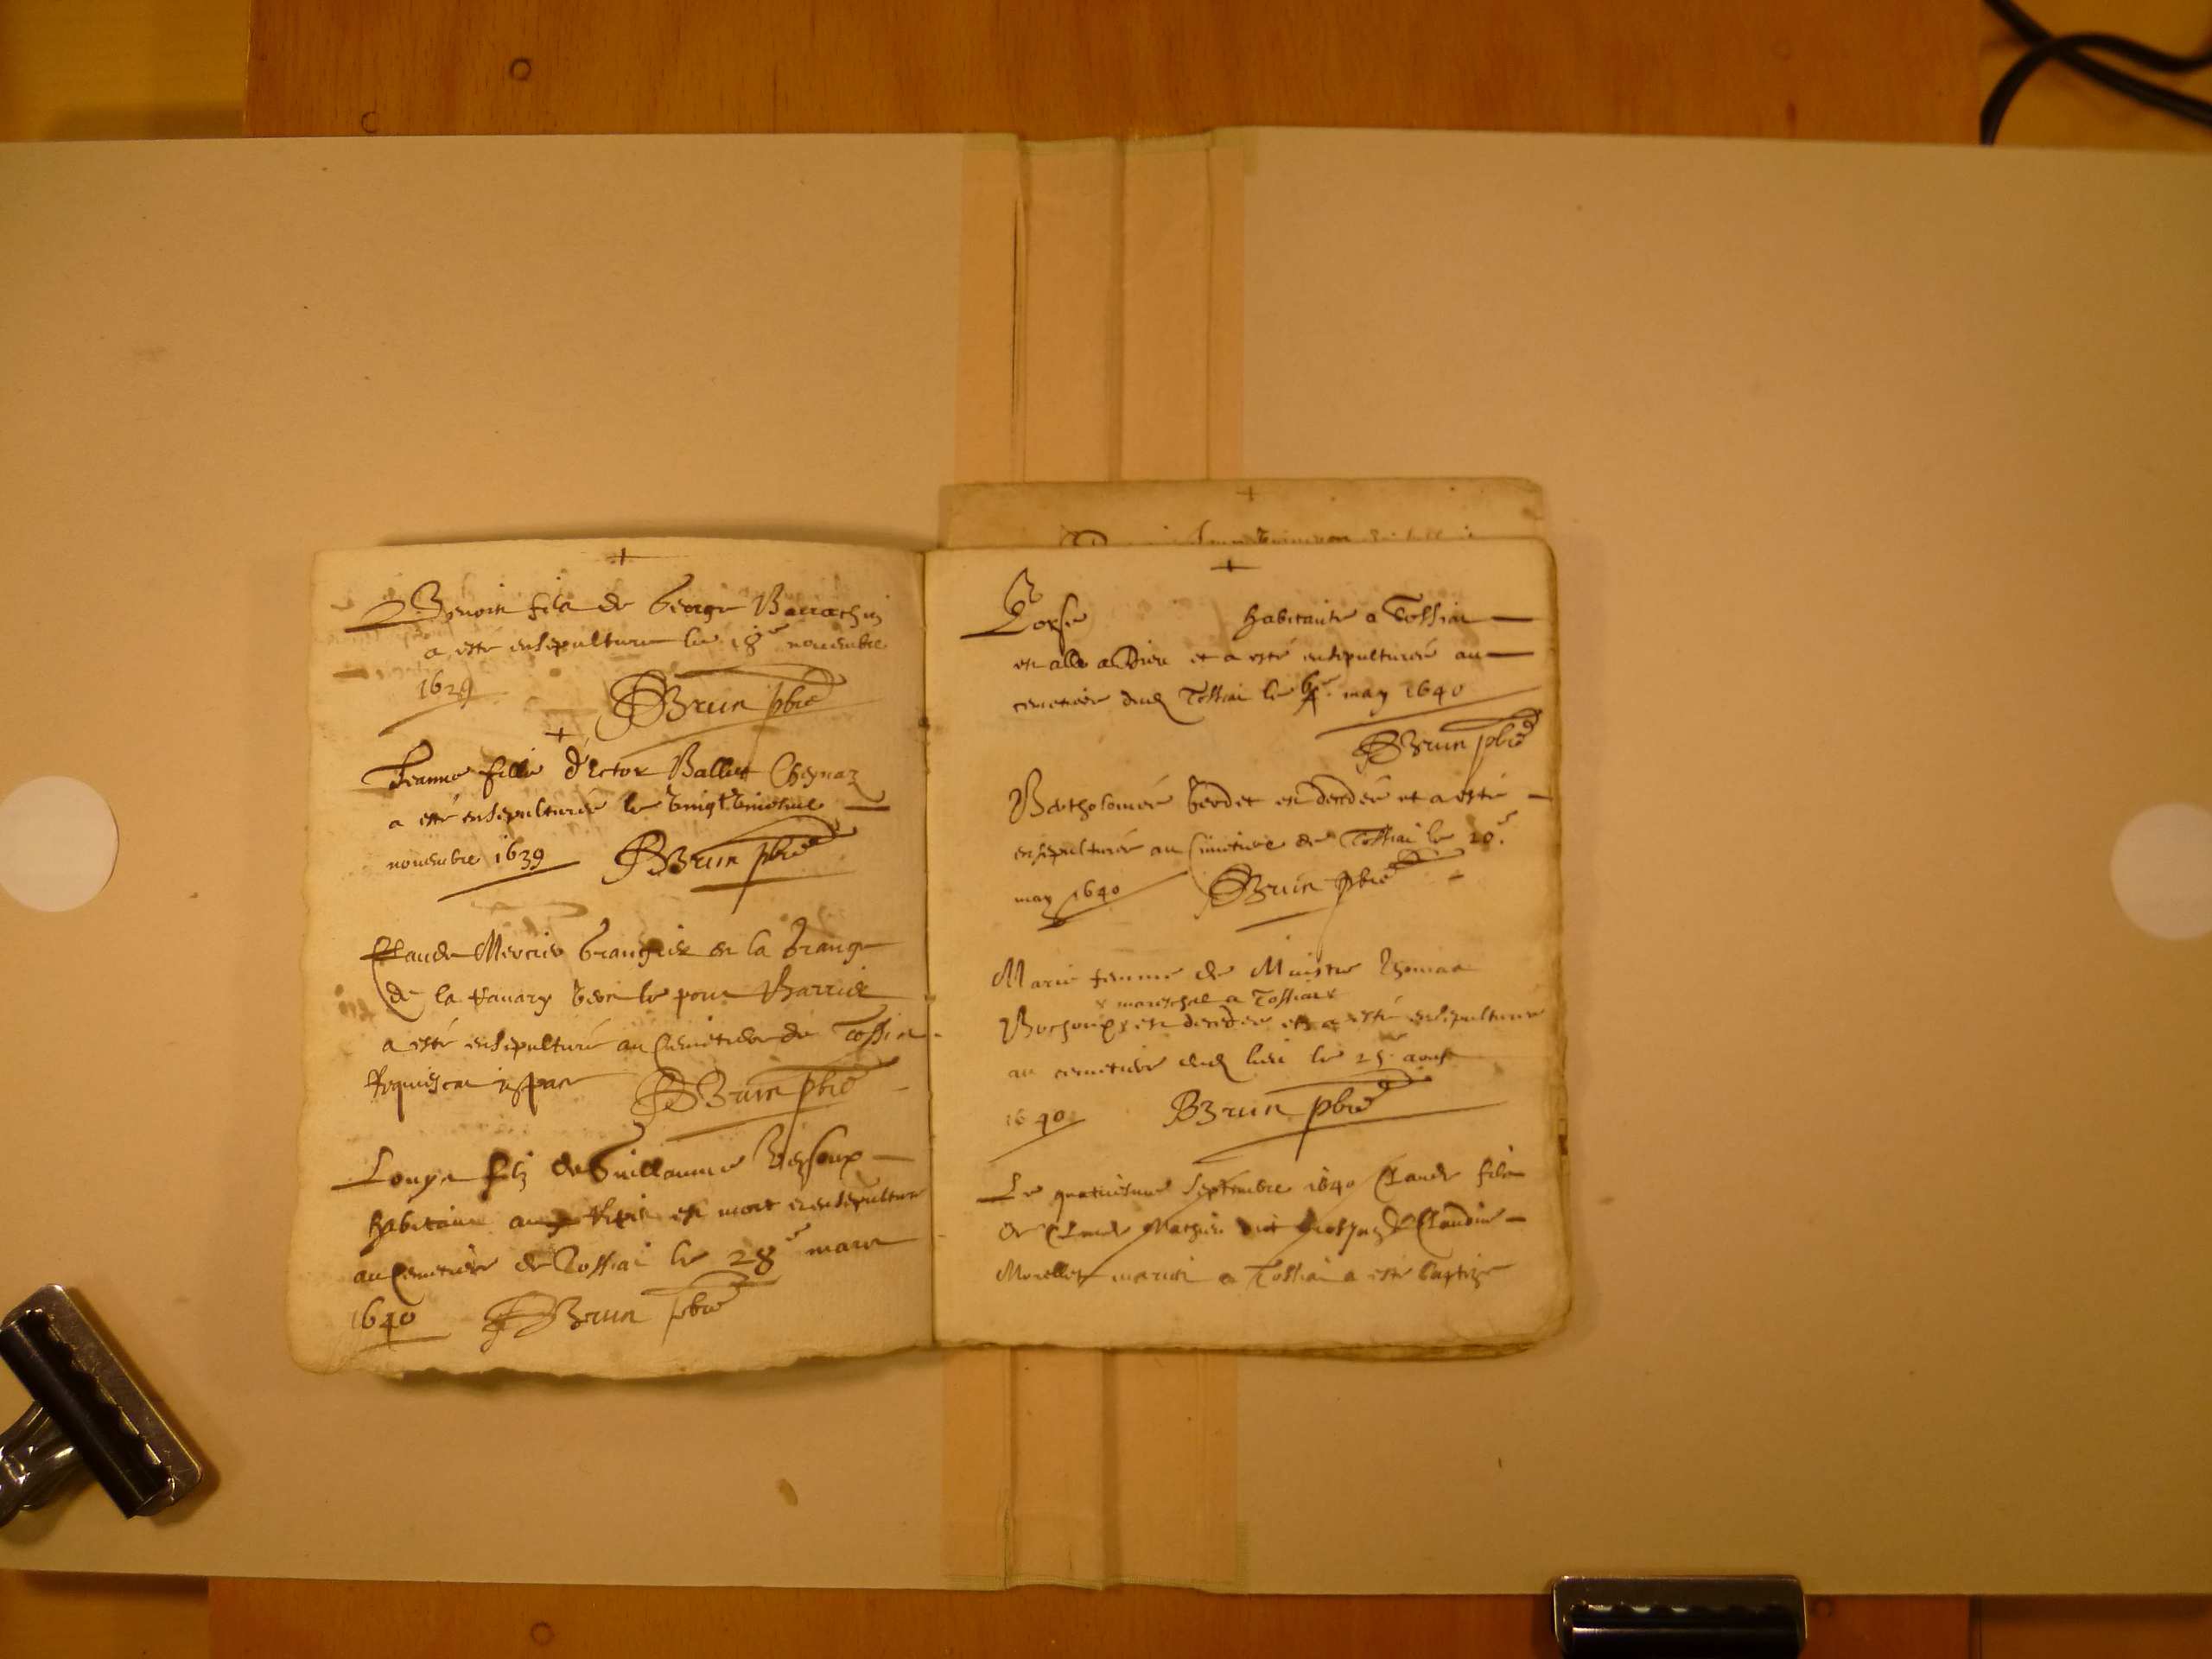 +
Benoit fils de George Barrachin
a esté ensepulture le 18e novembre
1639
BBrun pbre
+
Jeanne fille d'Ector Balliet Cheynaz
a esté ensepulturée le vingt uniesme
novembre 1639 BBrun pbre
Claude Mercier Grangier en la Grange
de la pour Barrier
a esté ensepulturé au Cemetiere de Tossia
Requiescat in pace BBrun pbre
Louys filz de Guillaume
habitant est mort ensepulture
au Cemetiere de Tossiai le 28e mars
1640 BBrun pbre
+
habitante a Tossiai
est alle a Dieu et a esté ensepulturée au
cemetiere dud Tossiai le may 1640
BBrun pbre
Bartholomee est decedée et a esté
ensepulturée au Cimetiere de Tossiai le 20e
may 1640 BBrun pbre
Marie femme de Maistre Thomas
x mareschal a Tossiai x
Bochoux x est decedee et a esté ensepulturee
au cemetiere dud lieu le 25e aoust
1640 BBrun pbre
Le quatriesme Septembre 1640 Claude fils
de Claude Mathieu dit & Claudine
Morellet mariés a Tossiai a esté baptize